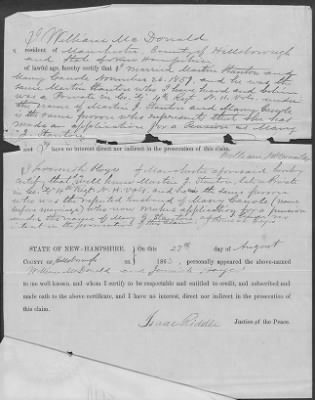 I, William McDonald
a resident of Manchester, County of Hillsborough
and State of New Hampshire
of lawful age, hereby certify that I married Martin Stanton and
Mary November 26, 1857, and he was the
same Martin Stanton who I have heard and believe
was a Private in Co. 10th Regt. N. H. Vols. under
the name of Martin J. Stanton and Mary
is the same person who represents that she has
made an application for a Pension as Mary
J. Stanton
and I have no interest direct nor indirect in the prosecution of this claim.
William McDonald
I Jeremiah Hayes of Manchester aforesaid hereby
certify that I well knew Martin J. Stanton, late a Private
in Co. 10th Regt. N. H. Vols. and he is the same person
who was the reputed husband of Mary (name
before marriage) who now makes application for a pension
under the name of Mary J. Stanton,
interest in the prosecution of this claim
STATE OF NEW-HAMPSHIRE. On this 27th day of August
COUNTY OF Hillsborough ss 1863, personally appeared the above-named
William McDonald and Jeremiah Hayes
to me well known, and whom I certify to be respectable and entitled to credit, and subscribed and
made oath to the above certificate, and I have no interest, direct nor indirect in the prosecution
of this claim.
Isaac Riddle Justice of the Peace.